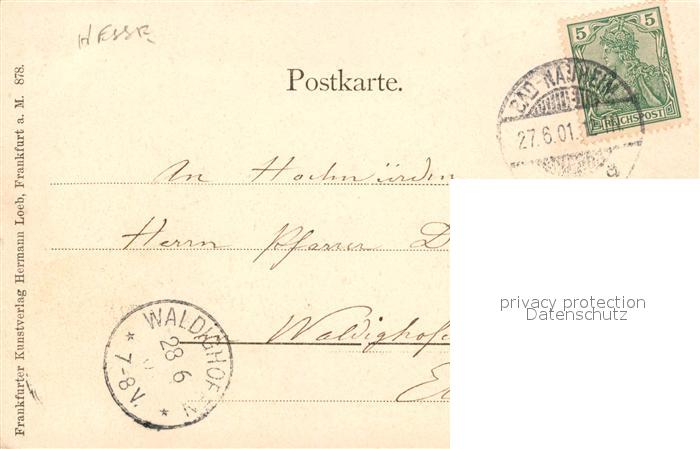 HESSE
Postkarte.
5 5
REICHSPOST
BAD-NAUHEIM
27.6.01.
a
An Hochwürden
Herrn Pfarrer D
Waldighofe
El
privacy protection
Datenschutz
WALDIGHOFEN
28 6
* 7-8V. *
Frankfurter Kunstverlag Hermann Loeb, Frankfurt a. M. 878.